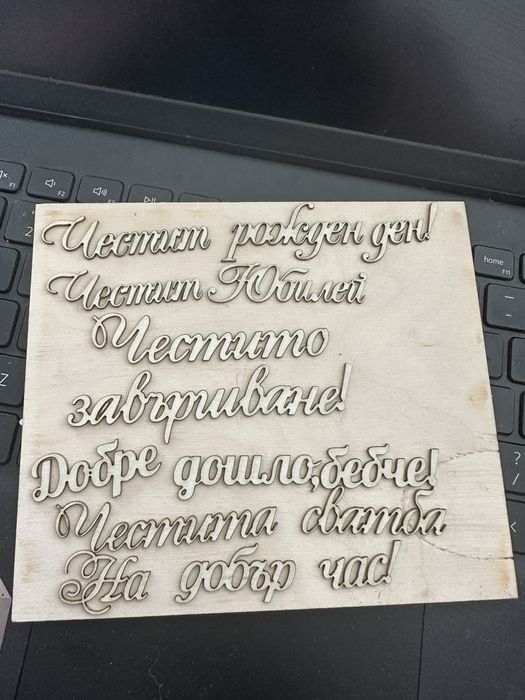 F1
F2
home
F11
2
Z
?
/
<
Честит рожден ден!
Честит Юбилей
Честито
завършване!
Добре дошло,бебче!
Честита сватба
На добър час!